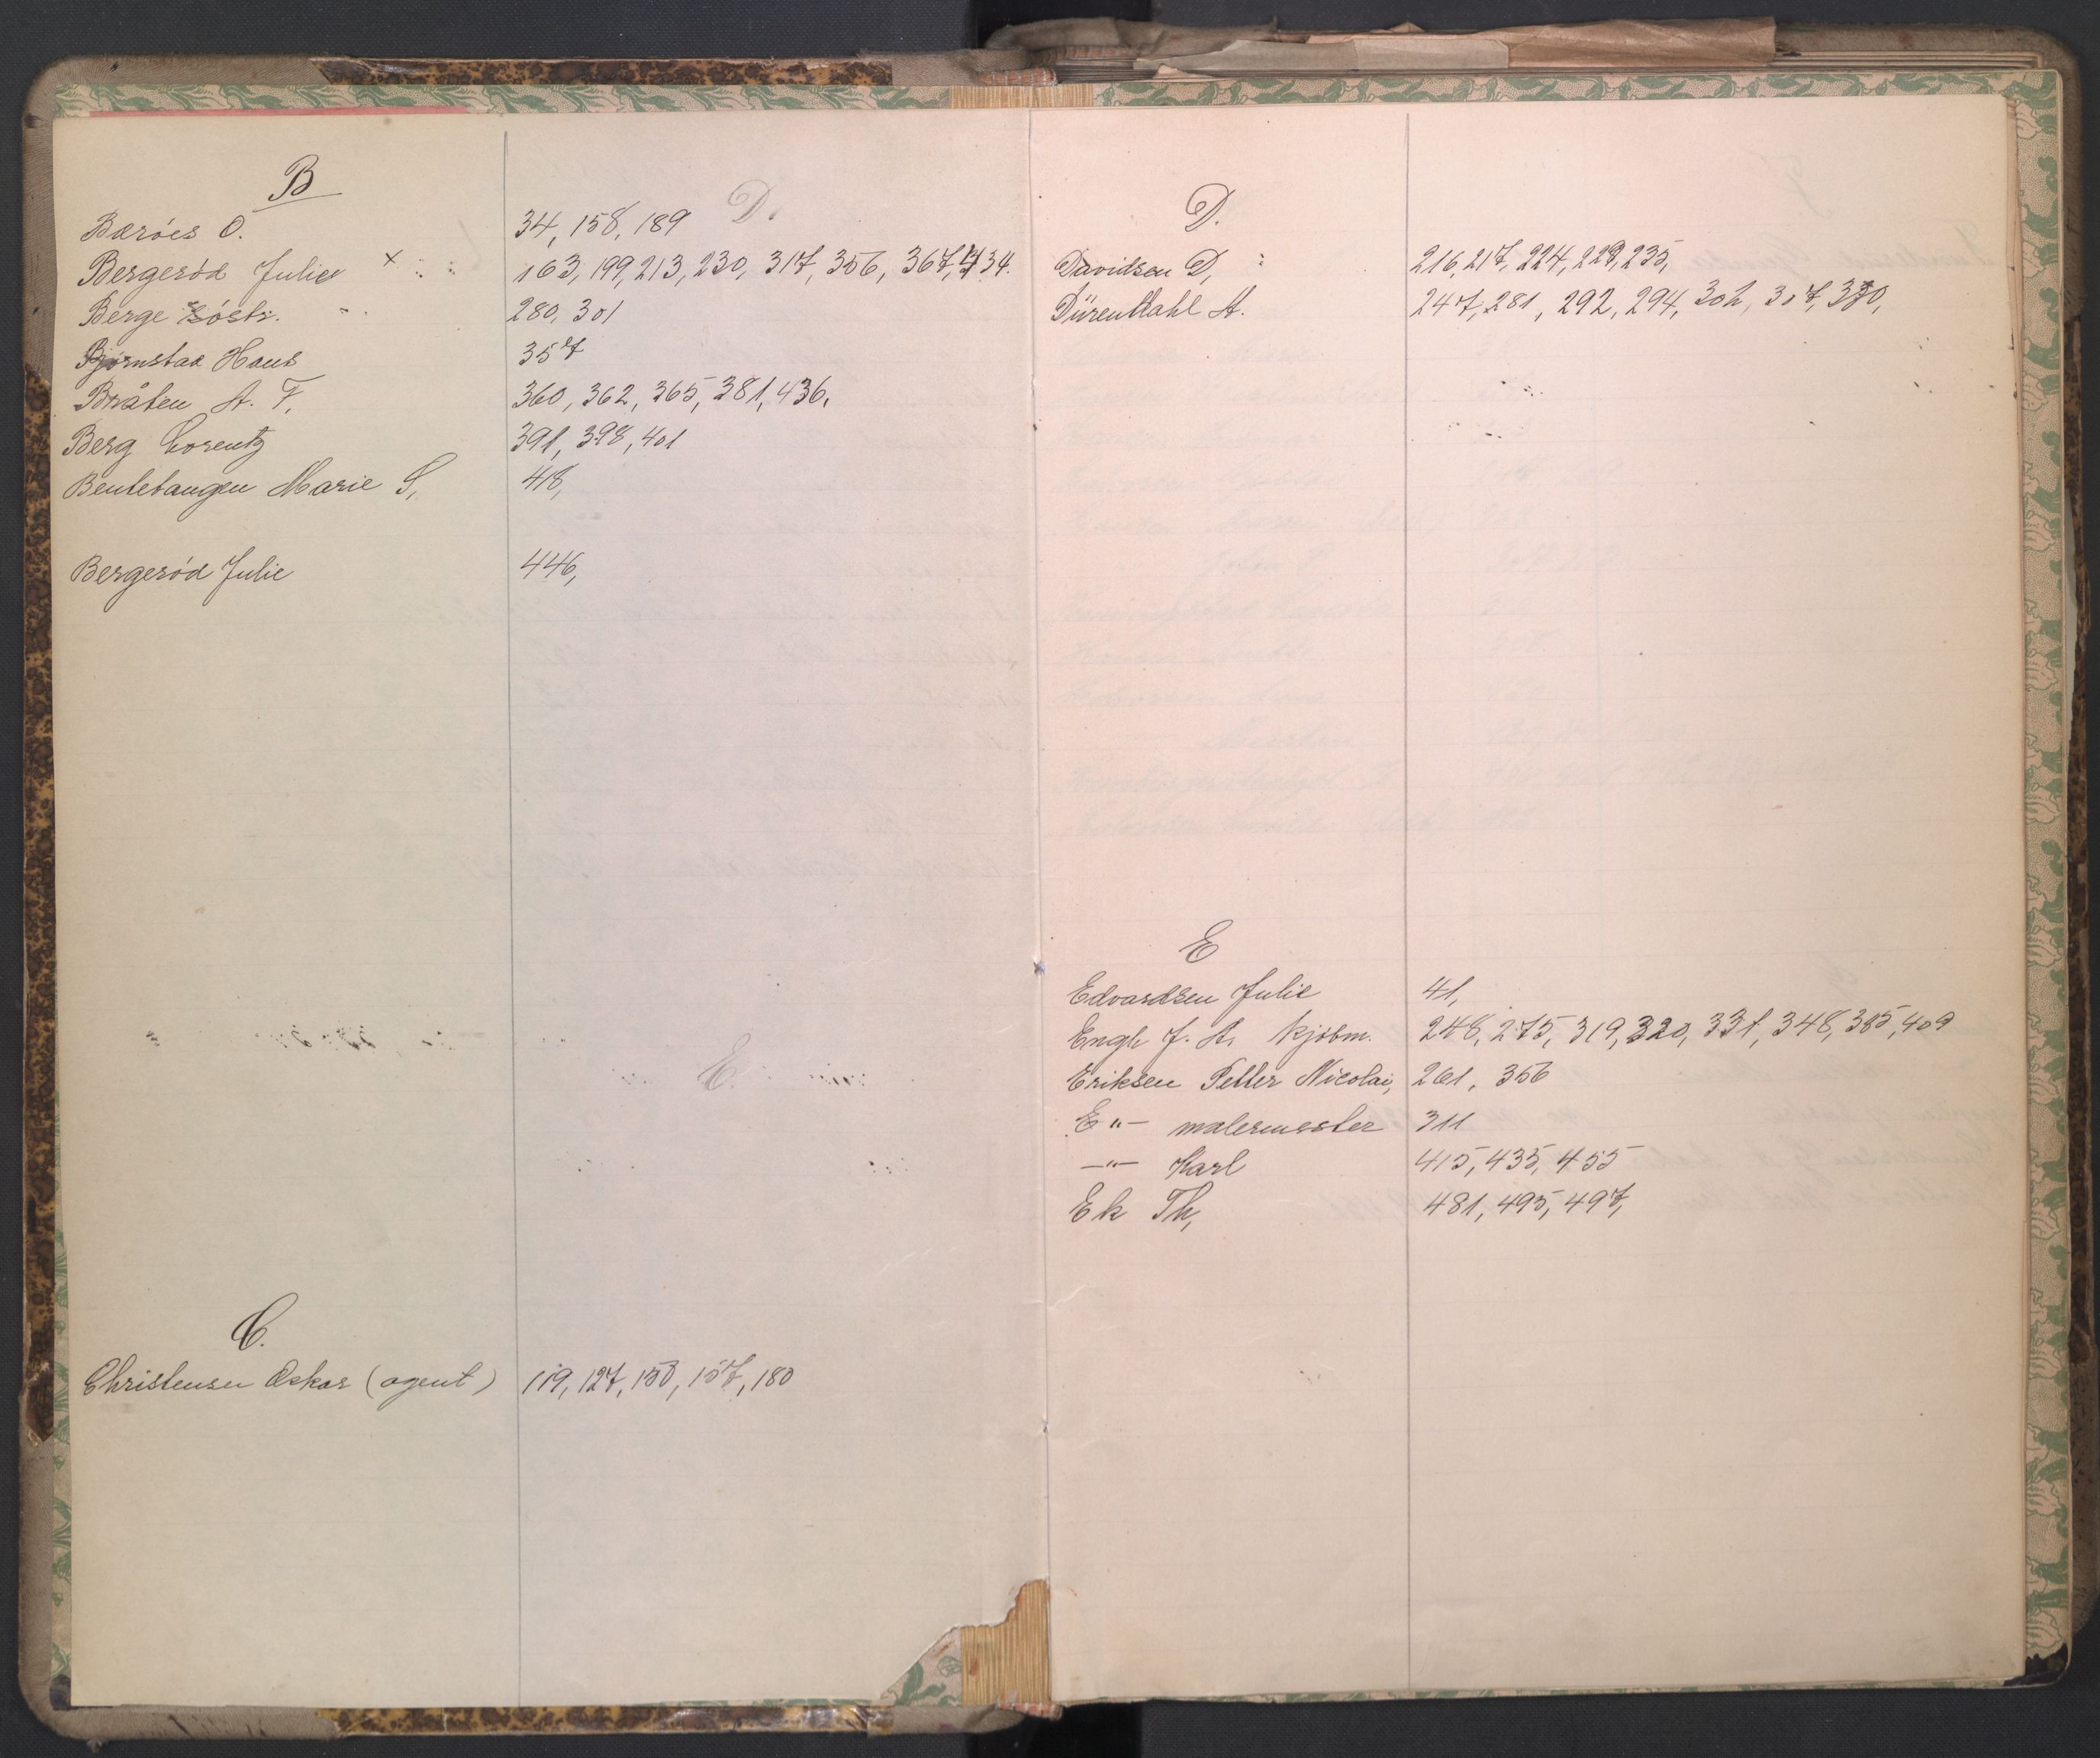 B
Barøes O. 34, 158, 189
Bergerød Julie × 163, 199, 213, 230, 317, 356, 367, 434.
Berge Søstr. 280, 301
Bjørnstad Hans 357
Bråten A. F. 360, 362, 365, 381, 436,
Berg Lorentz 391, 398, 401
Bentetangen Marie S, 418,
Bergerød Julie 446,
C.
Christensen Oskar (agent) 119, 127, 153, 157, 180
D.
Davidsen D, 216, 217, 224, 229, 235,
Dürendahl A. 247, 281, 292, 294, 302, 307, 330,
E
Edvardsen Julie 41,
Engh J. A. kjøbm. 248, 275, 319, 320, 331, 348, 385, 409
Eriksen Petter Nicolai, 261, 356
E -"- malermester 311
-"- Karl 415, 435, 455
Ek Th, 481, 495, 497,